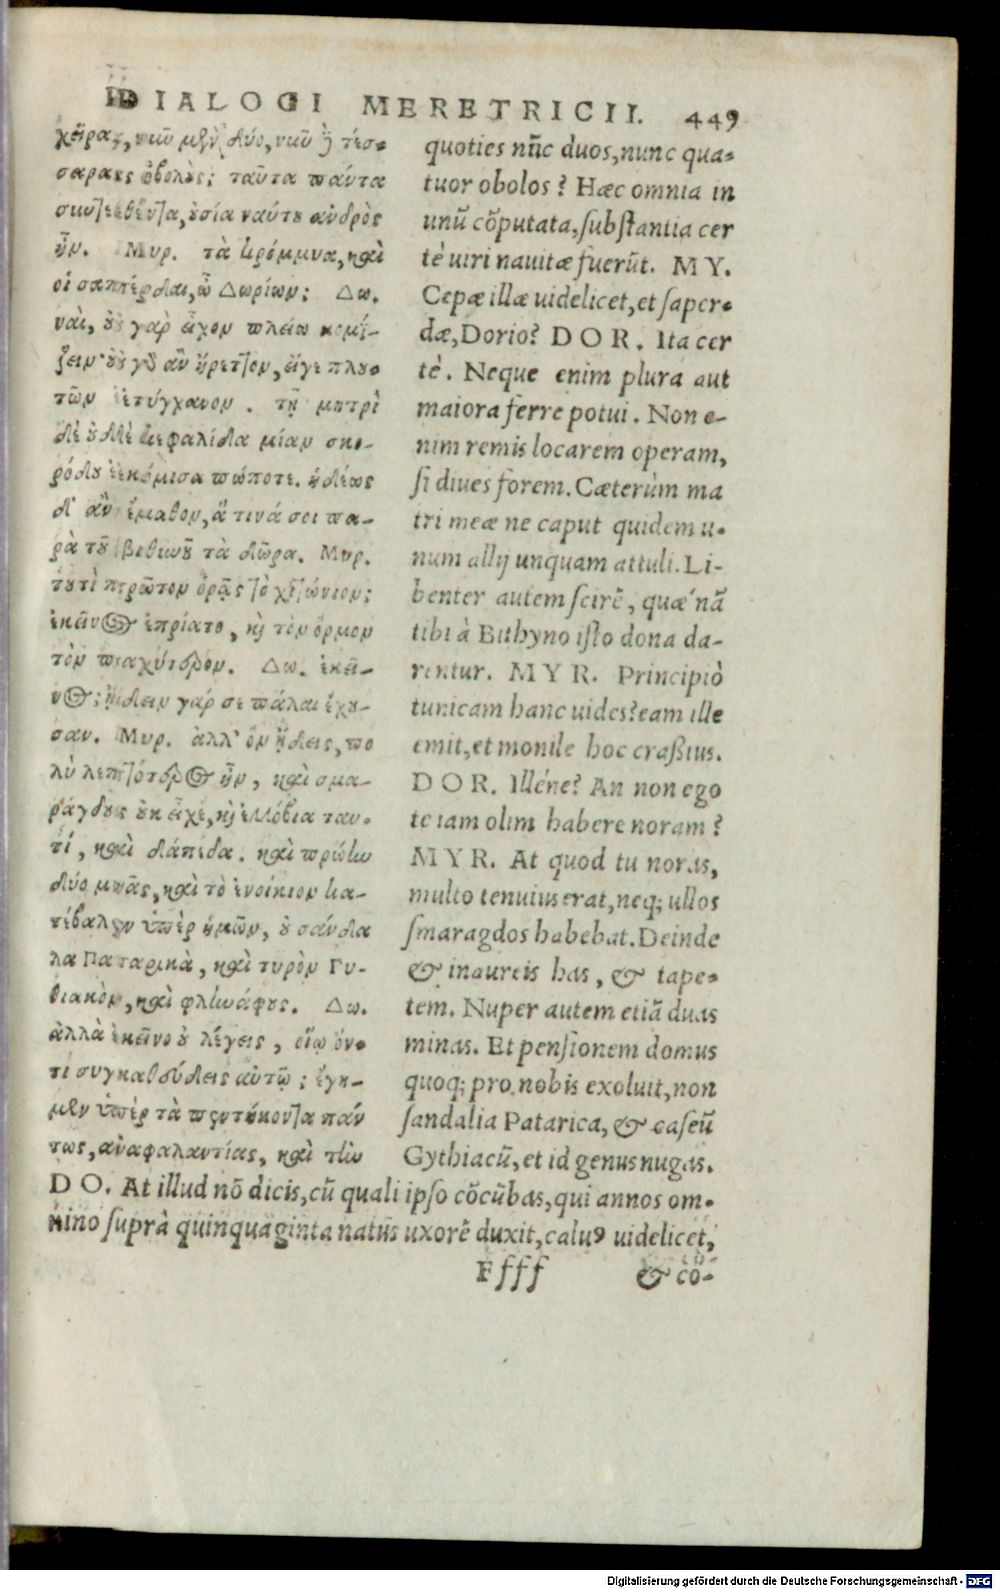 DIALOGI MERETRICII. 449
χεῖρας, νῦν μὲν δύο, νῦν ἢ τέσ-
σαρας ὀβολούς; ταῦτα πάντα
συντεθέντα, οὐσία ναύτου ἀνδρὸς
ἦν. Μυρ. τὰ κρόμμυα, καὶ
οἱ σαπέρδαι, ὦ Δωρίων; Δω.
ναί, οὐ γὰρ εἶχον πλείω κομί-
ζειν· οὐ γὸ ἂν ἤρεττον, εἴγε πλου-
τῶν ἐτύγχανον. τῇ μητρὶ
δὲ οὐδὲ κεφαλίδα μίαν σκο-
ρόδου ἐκόμισα πώποτε. ἡδέως
δ' ἂν ἔμαθον, ἅ τινά σοι πα-
ρὰ τοῦ βιθυνοῦ τὰ δῶρα. Μυρ.
τουτὶ πρῶτον ὁρᾷς τὸ χιτώνιον;
ἐκεῖνος ἐπρίατο, καὶ τὸν ὅρμον
τὸν παχύτερον. Δω. ἐκεῖ-
νος; ᾔδειν γάρ σε πάλαι ἔχου-
σαν. Μυρ. ἀλλ' ὃν ᾔδεις, πο
λὺ λεπτότερος ἦν, καὶ σμα-
ράγδους οὐκ εἶχε, καὶ ἐλλόβια ταυ-
τί, καὶ δάπιδα. καὶ πρώην
δύο μνᾶς, καὶ τὸ ἐνοίκιον κα-
τέβαλεν ὑπὲρ ἡμῶν, οὐ σάνδα
λα Παταρικὰ, καὶ τυρὸν Γυ-
θιακὸν, καὶ φληνάφους. Δω.
ἀλλὰ ἐκεῖνο οὐ λέγεις, οἵῳ ὄν-
τι συγκαθεύδεις αὐτῷ; ἔτη-
μὲν ὑπὲρ τὰ πεντήκοντα πάν
τως, ἀναφαλαντίας, καὶ τὴν
quoties nūc duos, nunc qua-
tuor obolos? Hæc omnia in
unū cōputata, substantia cer
tè uiri nauitæ fuerūt. MY.
Cepæ illæ uidelicet, et saper-
dæ, Dorio? DOR. Ita cer
tè. Neque enim plura aut
maiora ferre potui. Non e-
nim remis locarem operam,
si diues forem. Cæterùm ma
tri meæ ne caput quidem u-
num allij unquam attuli. Li-
benter autem scirē, quæ nā
tibi à Bithyno isto dona da-
rentur. MYR. Principiò
tunicam hanc uides? eam ille
emit, et monile hoc craßius.
DOR. Illéne? An non ego
te iam olim habere noram?
MYR. At quod tu noras,
multo tenuius erat, neq; ullos
smaragdos habebat. Deinde
& inaureis has, & tape-
tem. Nuper autem etiā duas
minas. Et pensionem domus
quoq; pro nobis exoluit, non
sandalia Patarica, & caseū
Gythiacū, et id genus nugas.
DO. At illud nō dicis, cū quali ipso cōcūbas, qui annos om-
nino suprà quinquaginta natus uxorē duxit, caluꝰ uidelicet,
Ffff & co-
Digitalisierung gefördert durch die Deutsche Forschungsgemeinschaft - DFG